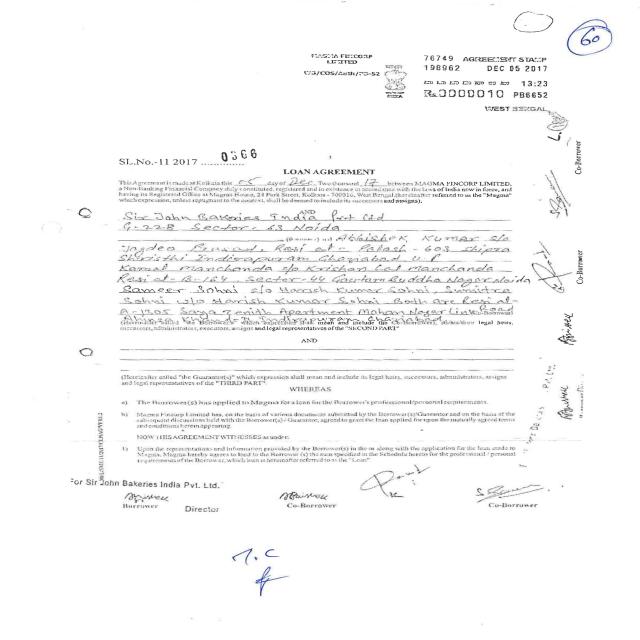 60
MAGMA FINCORP
LIMITED
76749 AGREEMENT STAMP
198962 DEC 05 2017
13:23
Rs.0000010 PB6652
WEST BENGAL
SL.No.-11 2017 ............. 0366
LOAN AGREEMENT
This Agreement is made at Kolkata this 05 day of Dec Two thousand 17 between MAGMA FINCORP LIMITED,
a Non-Banking Financial Company duly constituted, registered and in existence in accordance with the laws of India now in force, and
having its Registered Office at Magma House, 24 Park Street, Kolkata - 700016, West Bengal (hereinafter referred to as the "Magma"
which expression, unless repugnant to the context, shall be deemed to include its successors and assigns).
AND
Sir John Bakeries India Pvt Ltd
G-22B Sector-63 Noida
Abhishek Kumar s/o
Jaydeo Prasad, Resi at - Palash - 603 Shipra
Shristhi Indirapuram Ghaziabad U.P
Kamal Manchanda s/o Krishan Lal Manchanda
Resi at - B-164, Sector-44 Gautam Buddha Nagar Noida
Sameer Sahni s/o Harish Kumar Sahni, Sumitra
Sahni w/o Harish Kumar Sahni Both are Resi at-
A-1305 Saya Zenith Apartment Mohan Nagar Link Road
Ahinsa Khand Indirapuram Ghaziabad
successors, administrators, executors, assigns and legal representatives of the "SECOND PART"
AND
(Hereinafter called "the Guarantor(s)" which expression shall mean and include its legal heirs, successors, administrators, assigns
and legal representatives of the "THIRD PART".
WHEREAS
a) The Borrower(s) has applied to Magma for a loan for the Borrower's professional/personal requirements.
b) Magma Fincorp Limited has, on the basis of various documents submitted by the Borrower(s)/Guarantor and on the basis of the
subsequent discussions held with the Borrower(s)/ Guarantor, agreed to grant the loan applied for upon the mutually agreed terms
and conditions herein appearing.
NOW THIS AGREEMENT WITNESSES as under:
1) Upon the representations and information provided by the Borrower(s) in the or along with the application for the loan made to
Magma, Magma hereby agrees to lend to the Borrower (s) the sum specified in the Schedule hereto for the professional / personal
requirements of the Borrower, which loan is hereinafter referred to as the "Loan"
For Sir John Bakeries India Pvt. Ltd.
Borrower
Director
Co-Borrower
Co-Borrower
Co-Borrower
Co-Borrower
Co-Borrower
T.C